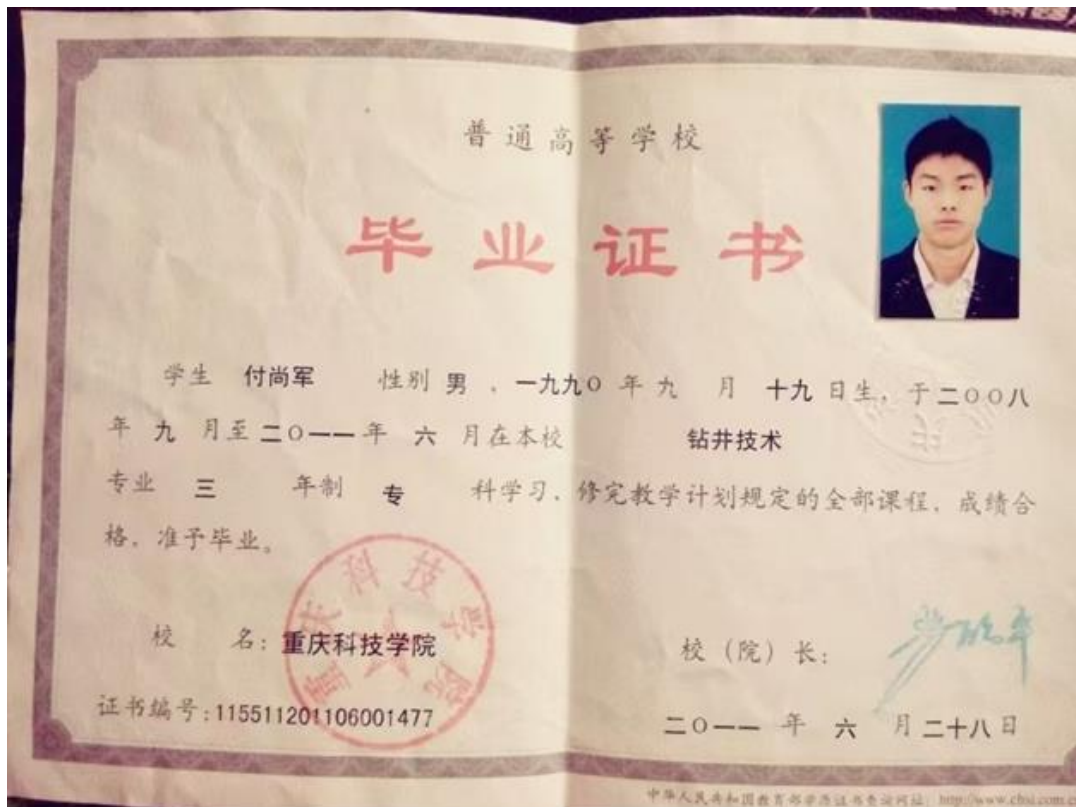 普通高等学校
毕业证书
学生 付尚军 性别 男 、一九九〇 年 九 月 十九 日生，于二〇〇八
年 九 月至二〇一一年 六 月在本校 钻井技术
专业 三 年制 专 科学习，修完教学计划规定的全部课程，成绩合
格，准予毕业。
重庆科技学院
校 名：重庆科技学院
校（院）长：
证书编号：115511201106001477
二〇一一 年 六 月 二十八日
中华人民共和国教育部学历证书查询网址：http://www.chsi.com.c